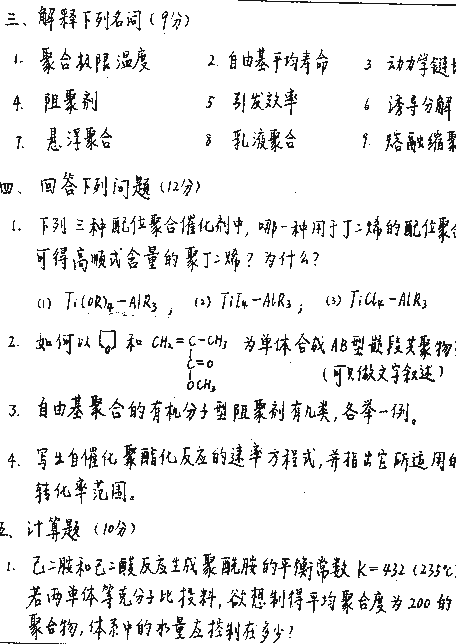 三、解释下列名词（9分）
1. 聚合极限温度 2. 自由基平均寿命 3 动力学链长
4. 阻聚剂 5 引发效率 6 诱导分解
7. 悬浮聚合 8 乳液聚合 9. 熔融缩聚
四、回答下列问题（12分）
1. 下列三种配位聚合催化剂中，哪一种用于丁二烯的配位聚合
可得高顺式含量的聚丁二烯？为什么？
(1) Ti(OR)4-AlR3， (2) TiI4-AlR3； (3) TiCl4-AlR3
2. 如何以 和 CH2=C-CH3 为单体合成AB型嵌段共聚物
C=O （可只做文字叙述）
OCH3
3. 自由基聚合的有机分子型阻聚剂有几类，各举一例。
4. 写出自催化聚酯化反应的速率方程式，并指出它所适用的
转化率范围。
五、计算题（10分）
1. 己二胺和己二酸反应生成聚酰胺的平衡常数 K=432（235℃）
若两单体等充分子比投料，欲想制得平均聚合度为200的
聚合物，体系中的水量应控制在多少？